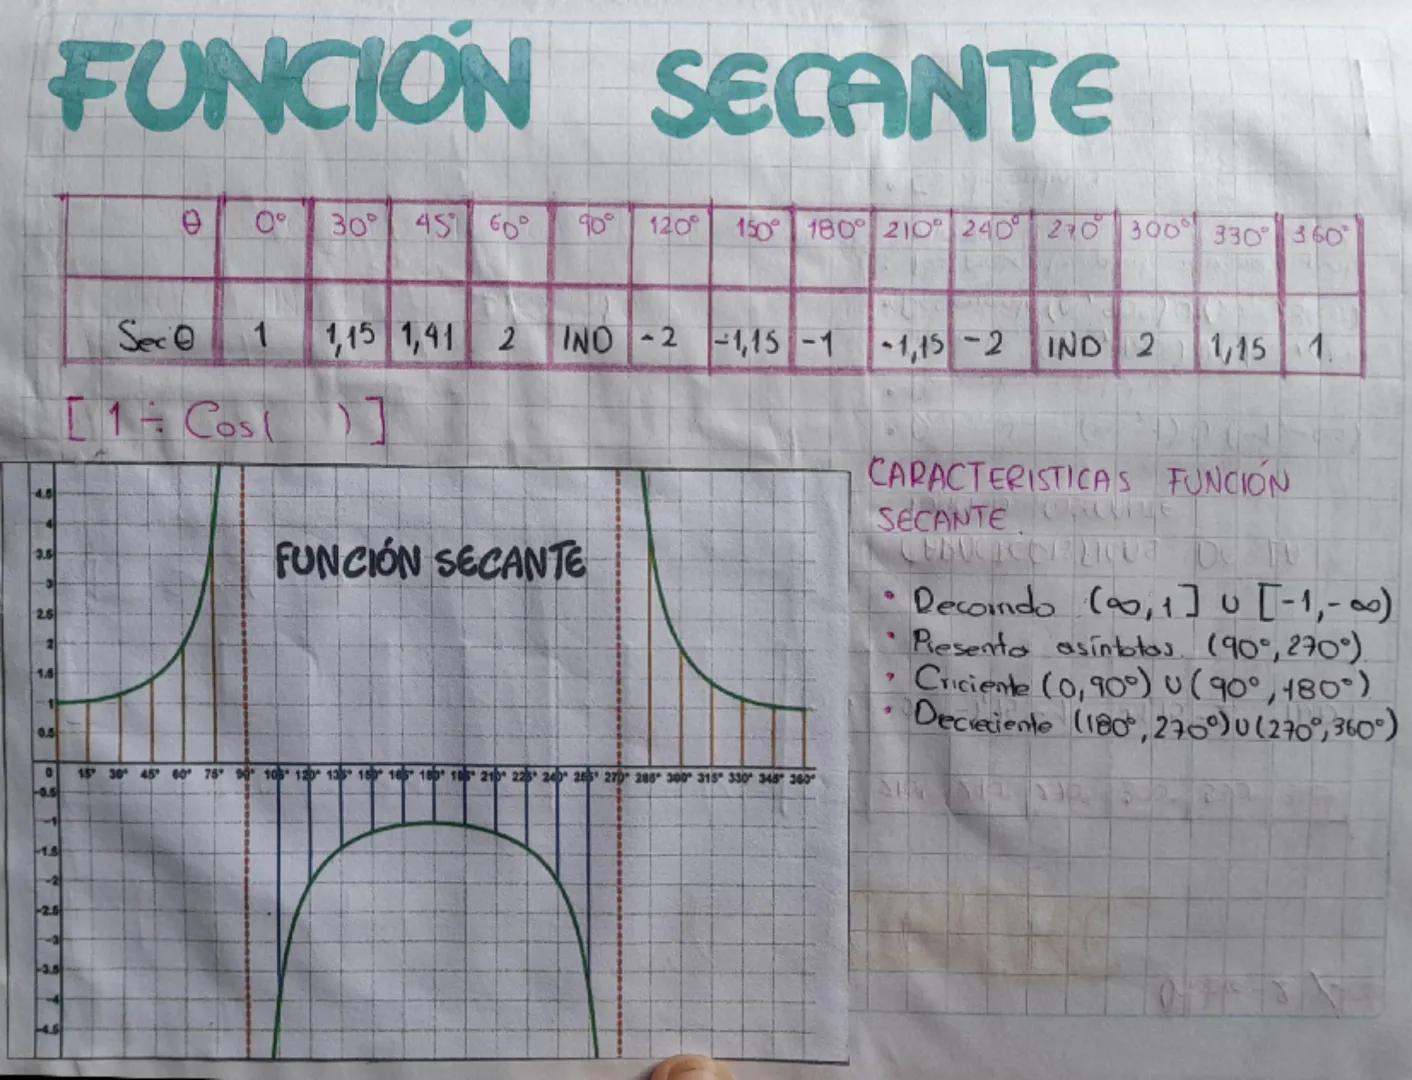 FUNCIÓN SECANTE
θ 0° 30° 45° 60° 90° 120° 150° 180° 210° 240° 270° 300° 330° 360°
Sec θ 1 1,15 1,41 2 IND -2 -1,15 -1 -1,15 -2 IND 2 1,15 1.
[1÷Cos( )]
CARACTERISTICAS FUNCIÓN
SECANTE.
• Decoindo (∞,1] U [-1,-∞)
• Presenta asíntotas. (90°, 270°)
• Criciente (0,90°) U (90°,180°)
• Decreciente (180°,270°)U(270°,360°)
FUNCIÓN SECANTE
4.5
4
3.5
3
2.5
2
1.5
1
0.5
0 15° 30° 45° 60° 75° 90° 105° 120° 135° 150° 165° 180° 195° 210° 225° 240° 255° 270° 285° 300° 315° 330° 345° 360°
-0.5
-1
-1.5
-2
-2.5
-3
-3.5
-4
-4.5